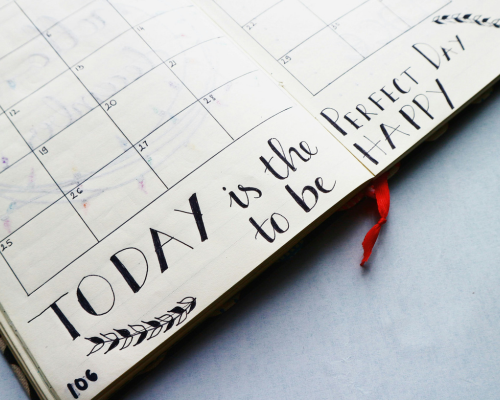 12
19
26
25
13
20
27
28
22
29
TODAY is the PERFECT DAY
to be HAPPY
106